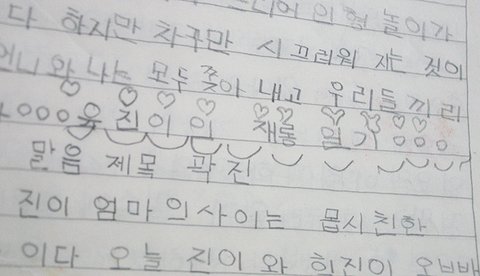 놀이가
다 하지만 차구만 시끄러워 지는 것이
언니와 나는 모두 좇아 내고 우리들 끼리
진이의 재롱 일기
말음 제목 곽진
진이 엄마의 사이는 몹시 친한
이다 오늘 진이 와